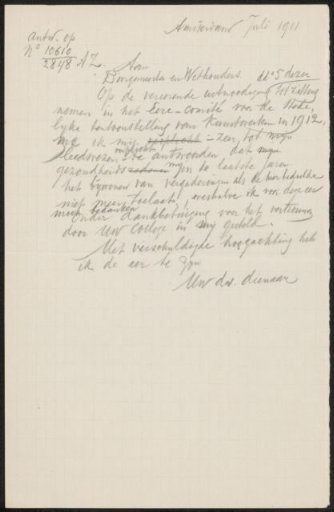 Amsterdam Juli 1911
Antw. op
N° 10610
2848 AZ.
Aan
Burgemeester en Wethouders
Op de vereerende uitnoodiging tot zitting
nemen in het Eere-Comité voor de Stede-
lijke tentoonstelling van Kunstwerken in 1912,
ik mij verplicht zeer tot mijn
leedwezen te antwoorden dat mijn
gezondheid mij de laatste jaren
het bijwonen van vergaderingen als de hierbedoelde
niet meer toelaat, weshalve ik voor deze eer
moet bedanken
onder dankbetuiging voor het vertrouwen
door Uw College in mij gesteld.
Met verschuldigde hoogachting heb
ik de eer te zijn
Uw dw. dienaar